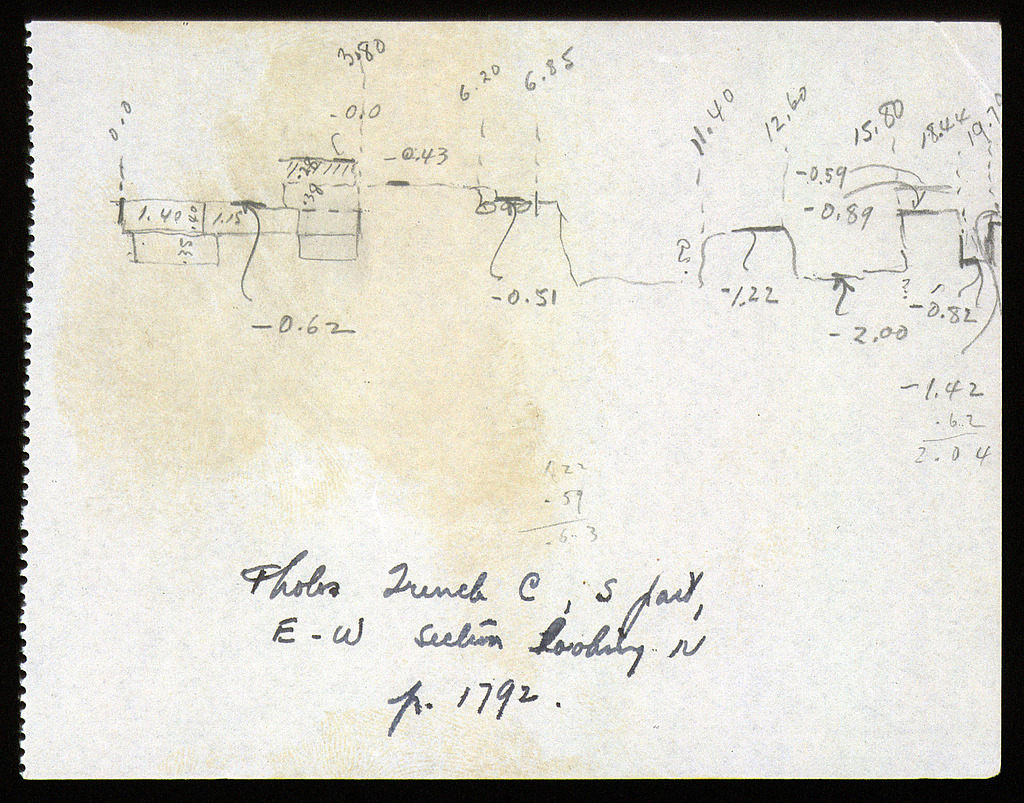 0.0
3.80
6.20
6.85
11.40
12.60
15.80
18.44
- 0.0
- 0.43
-0.59
-0.89
1.40
.40
1.15
.38
.35
-0.62
-0.51
-1.22
-2.00
-0.82
?
?
-1.42
.62
2.04
1.22
- .59
.63
Tholos Trench C, S part,
E-W section looking N
p. 1792.